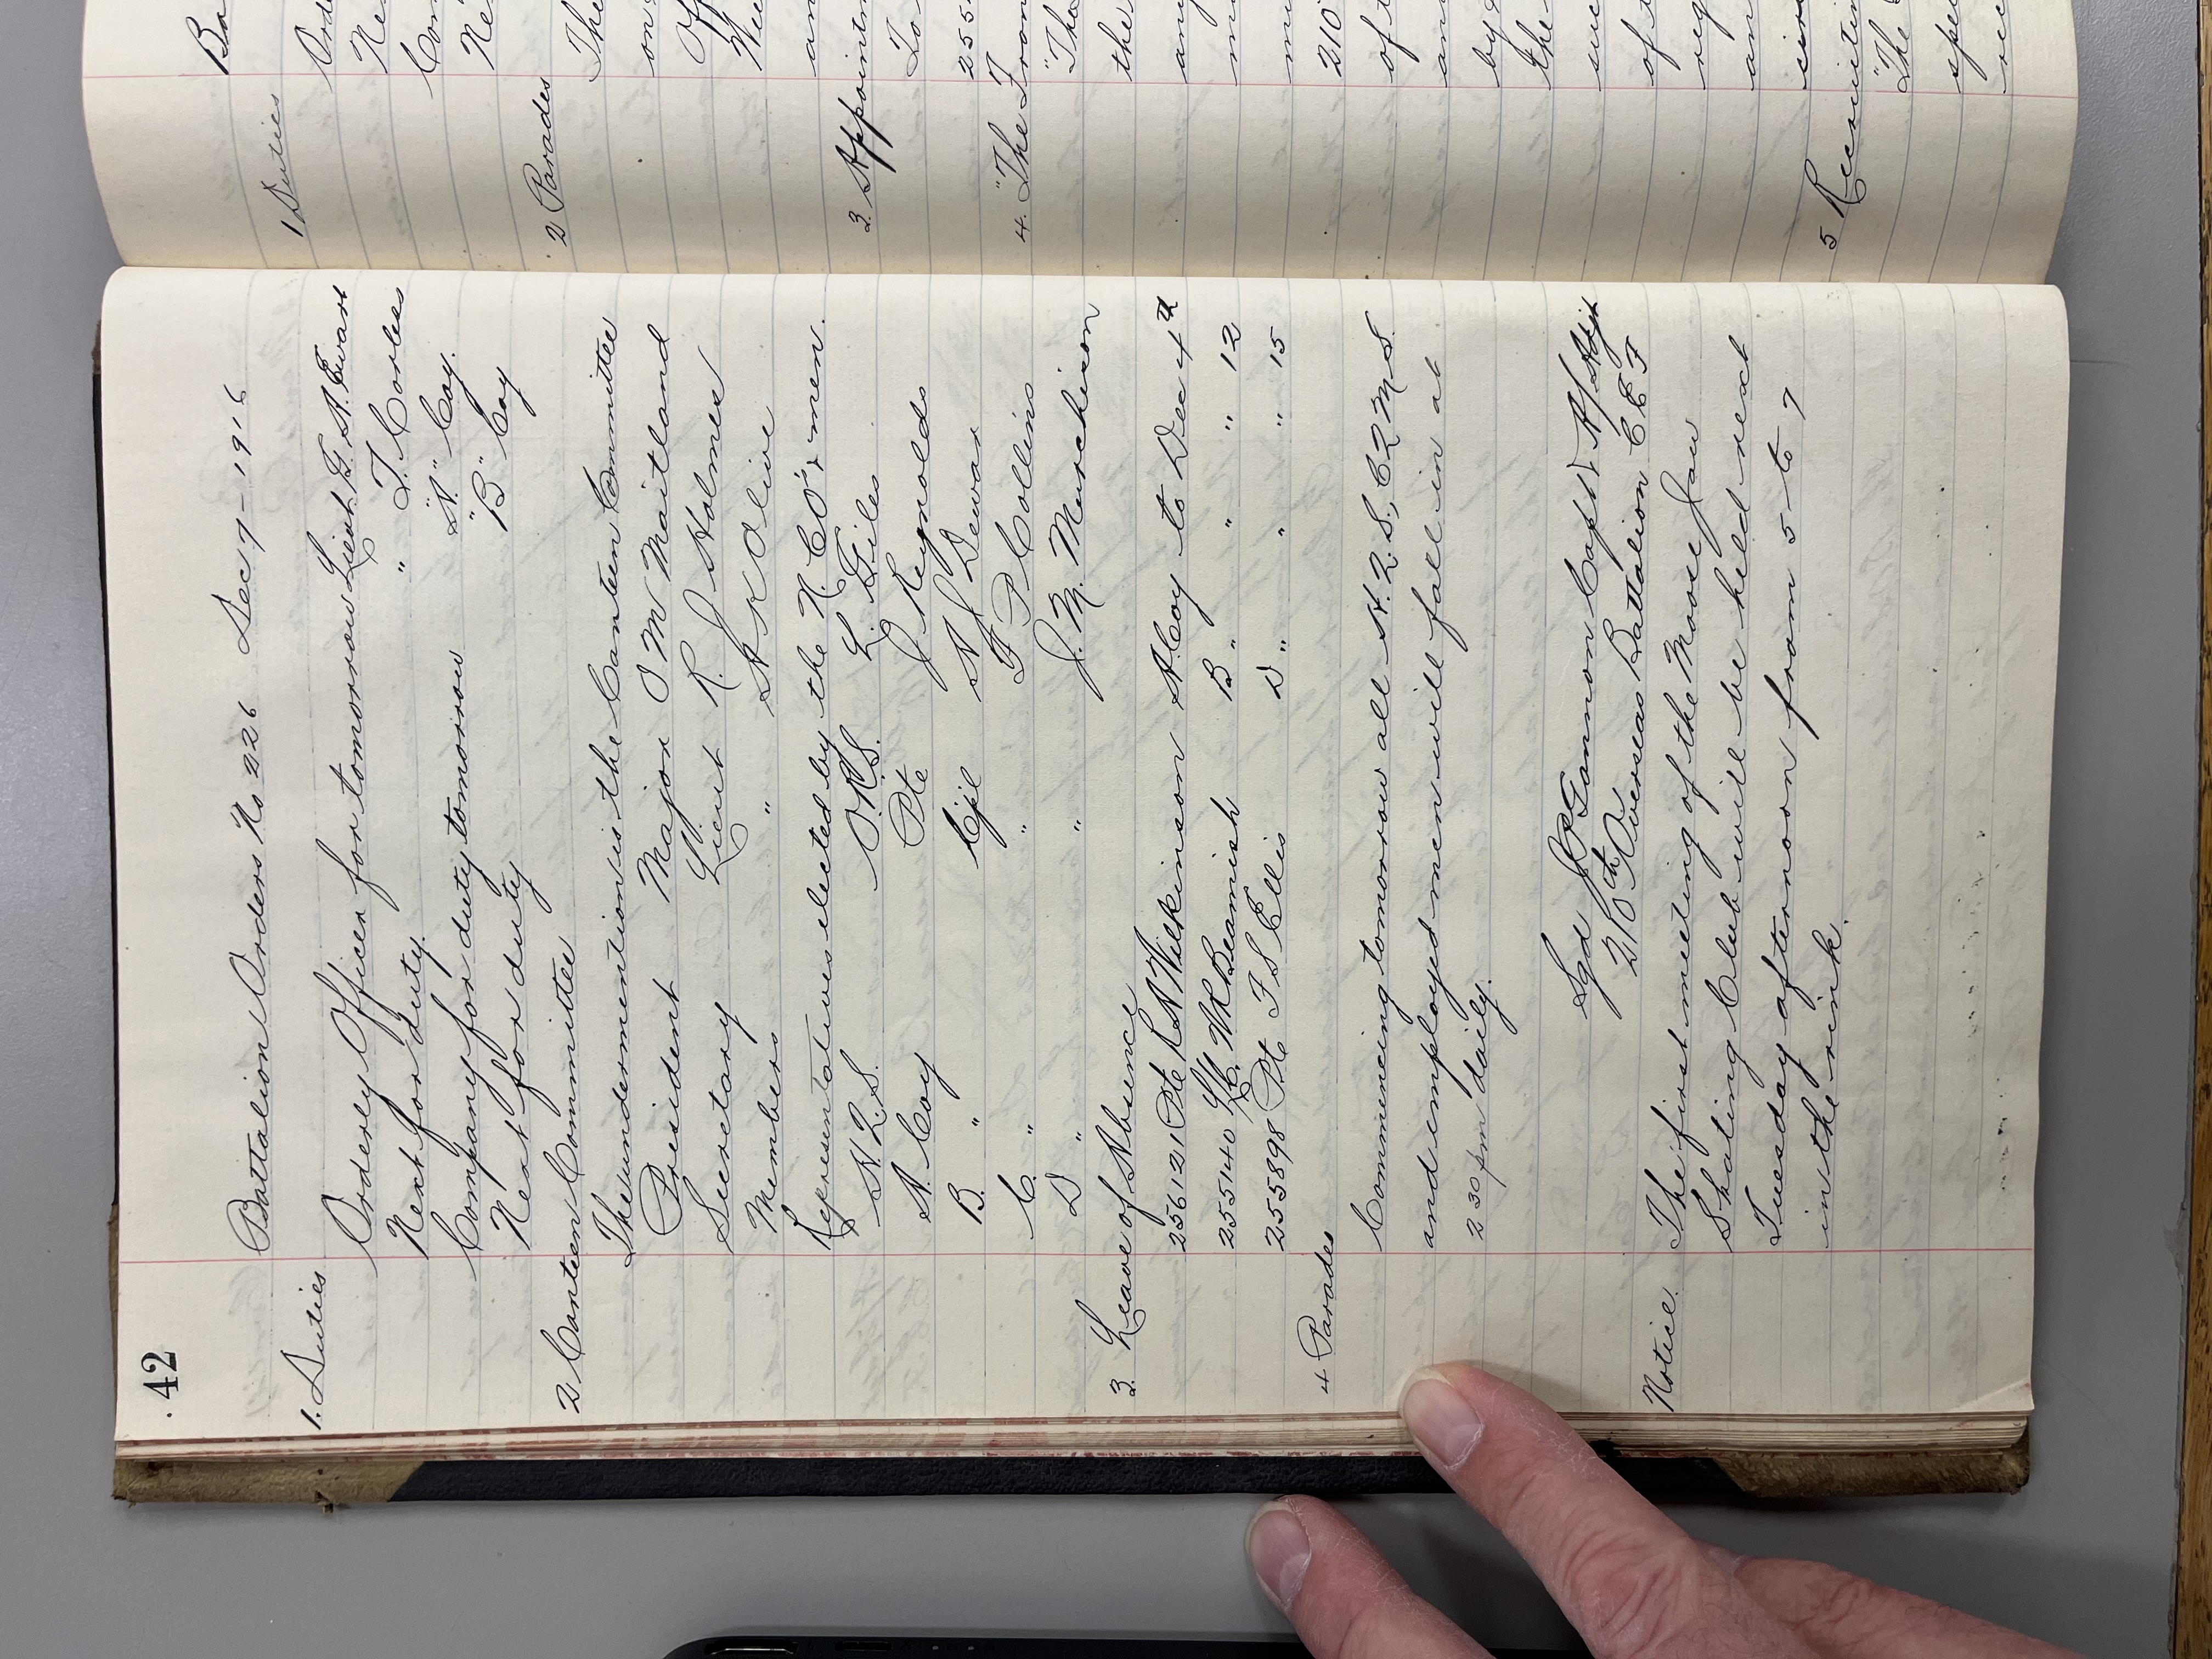 42
Battalion Orders No 226 Dec 7-1916
1. Duties
Orderly Officer for tomorrow Lieut G. A. Ewart
Next for duty. " T. Corles
Company for duty tomorrow "A" Coy.
Next for duty "B" Coy
2 Canteen Committee
The undermentioned is the Canteen Committee
President Major O M Maitland
Secretary Lieut R. J Holmes
Members " A K Olive
Representatives elected by the N.C.O's & men.
H.Q.S. O.R.S. L. Giles
A. Coy Pte J Reynolds
B. " Cpl A J Dewar
C. " " F P Collins
D " " J. M. Murchison
3. Leave of Absence
256121 Pte R A Wilkinson A. Coy to Dec 4th
255140 L/C. W R Beamish B " " " 12
255898 Pte F S Ellis D " " " 15
4 Parades
Commencing tomorrow all H.Q.S., C Q M S.
and employed men will fall in at
2 30 pm daily.
Sgd Gannon Capt A/Adjt
210th Overseas Battalion C E F
Notice. The first meeting of the Moose Jaw
Skating Club will be held next
Tuesday afternoon from 5 to 7
in the rink.
Ba
1 Duties
Orde
Ne
Com
Ne
2 Parades
The
on
Off
an
3. Appointm
To
255
4. "The Fron
"The
the
an
m
m
210
of t
an
by
the
suc
of t
reg
an
circ
5 Recruitin
"The
spe
rec